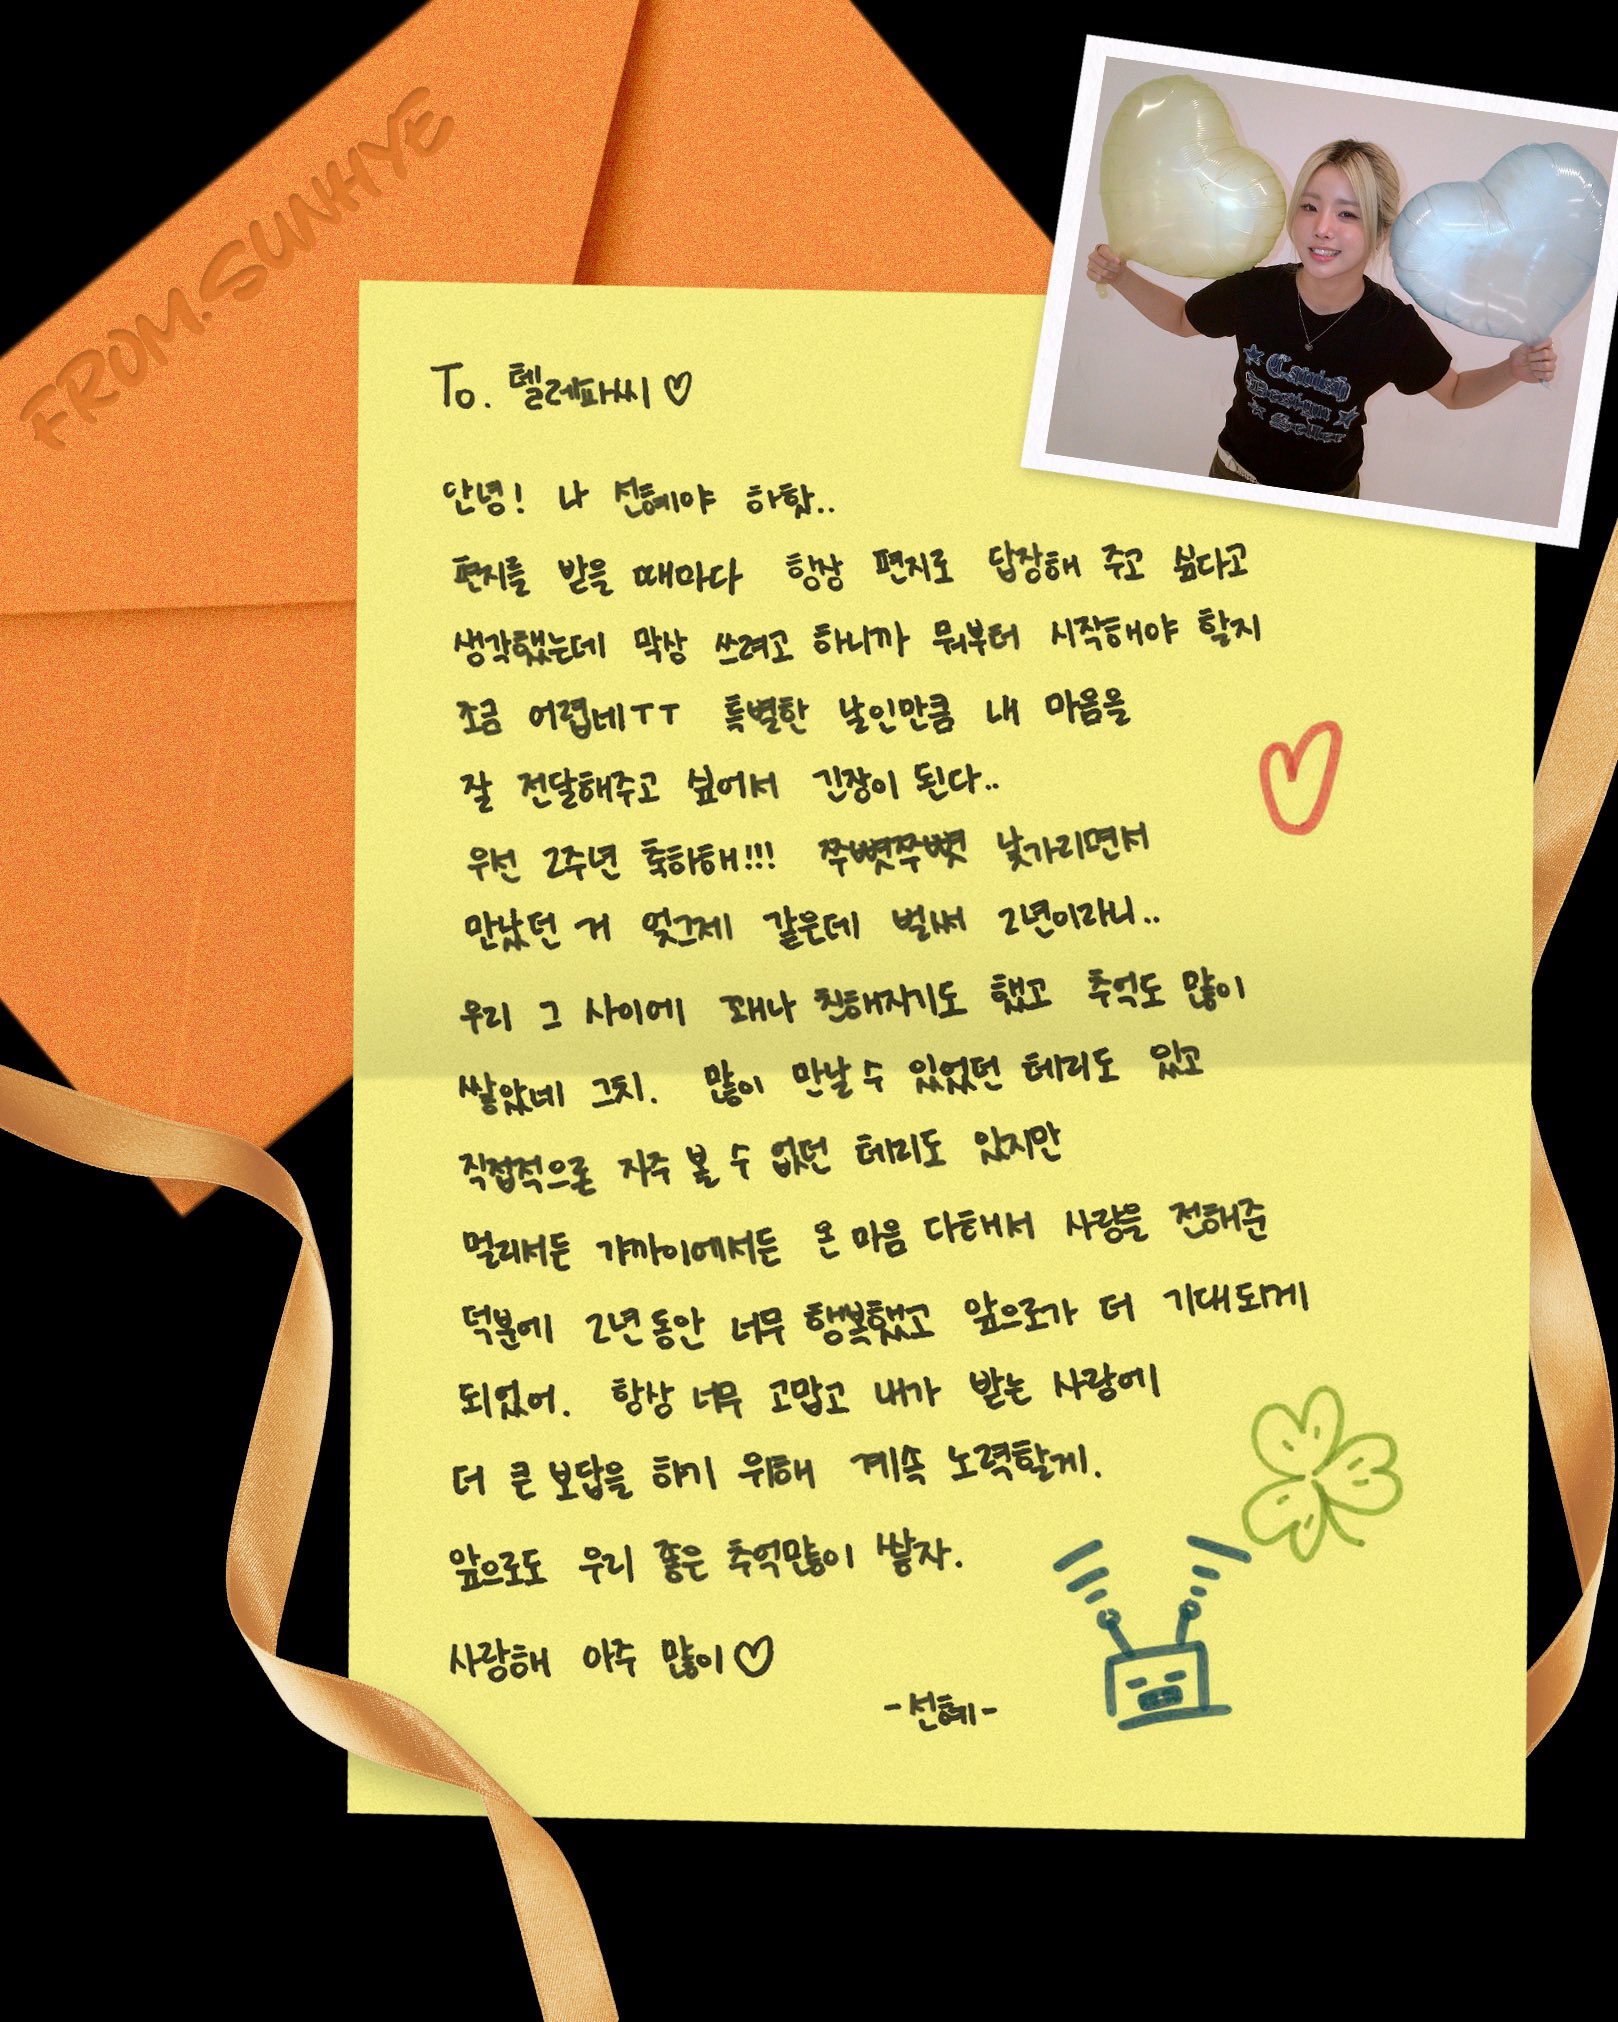 FROM. SUNHYE
To. 텔레파씨♡
안녕! 나 선혜야 하핫..
편지를 받을 때마다 항상 편지로 답장해 주고 싶다고
생각했는데 막상 쓰려고 하니까 뭐부터 시작해야 할지
조금 어렵네ㅜㅜ 특별한 날인만큼 내 마음을
잘 전달해주고 싶어서 긴장이 된다..
우선 2주년 축하해!!! 쭈뼛쭈뼛 낯가리면서
만났던 거 엊그제 같은데 벌써 2년이라니..
우리 그 사이에 꽤나 친해지기도 했고 추억도 많이
쌓았네 그치. 많이 만날 수 있었던 때도 있고
직접적으로 자주 볼 수 없던 때도 있지만
멀리서든 가까이에서든 온 마음 다해서 사랑을 전해준
덕분에 2년 동안 너무 행복했고 앞으로가 더 기대되게
되었어. 항상 너무 고맙고 내가 받는 사랑에
더 큰 보답을 하기 위해 계속 노력할게.
앞으로도 우리 좋은 추억많이 쌓자.
사랑해 아주 많이♡
-선혜-